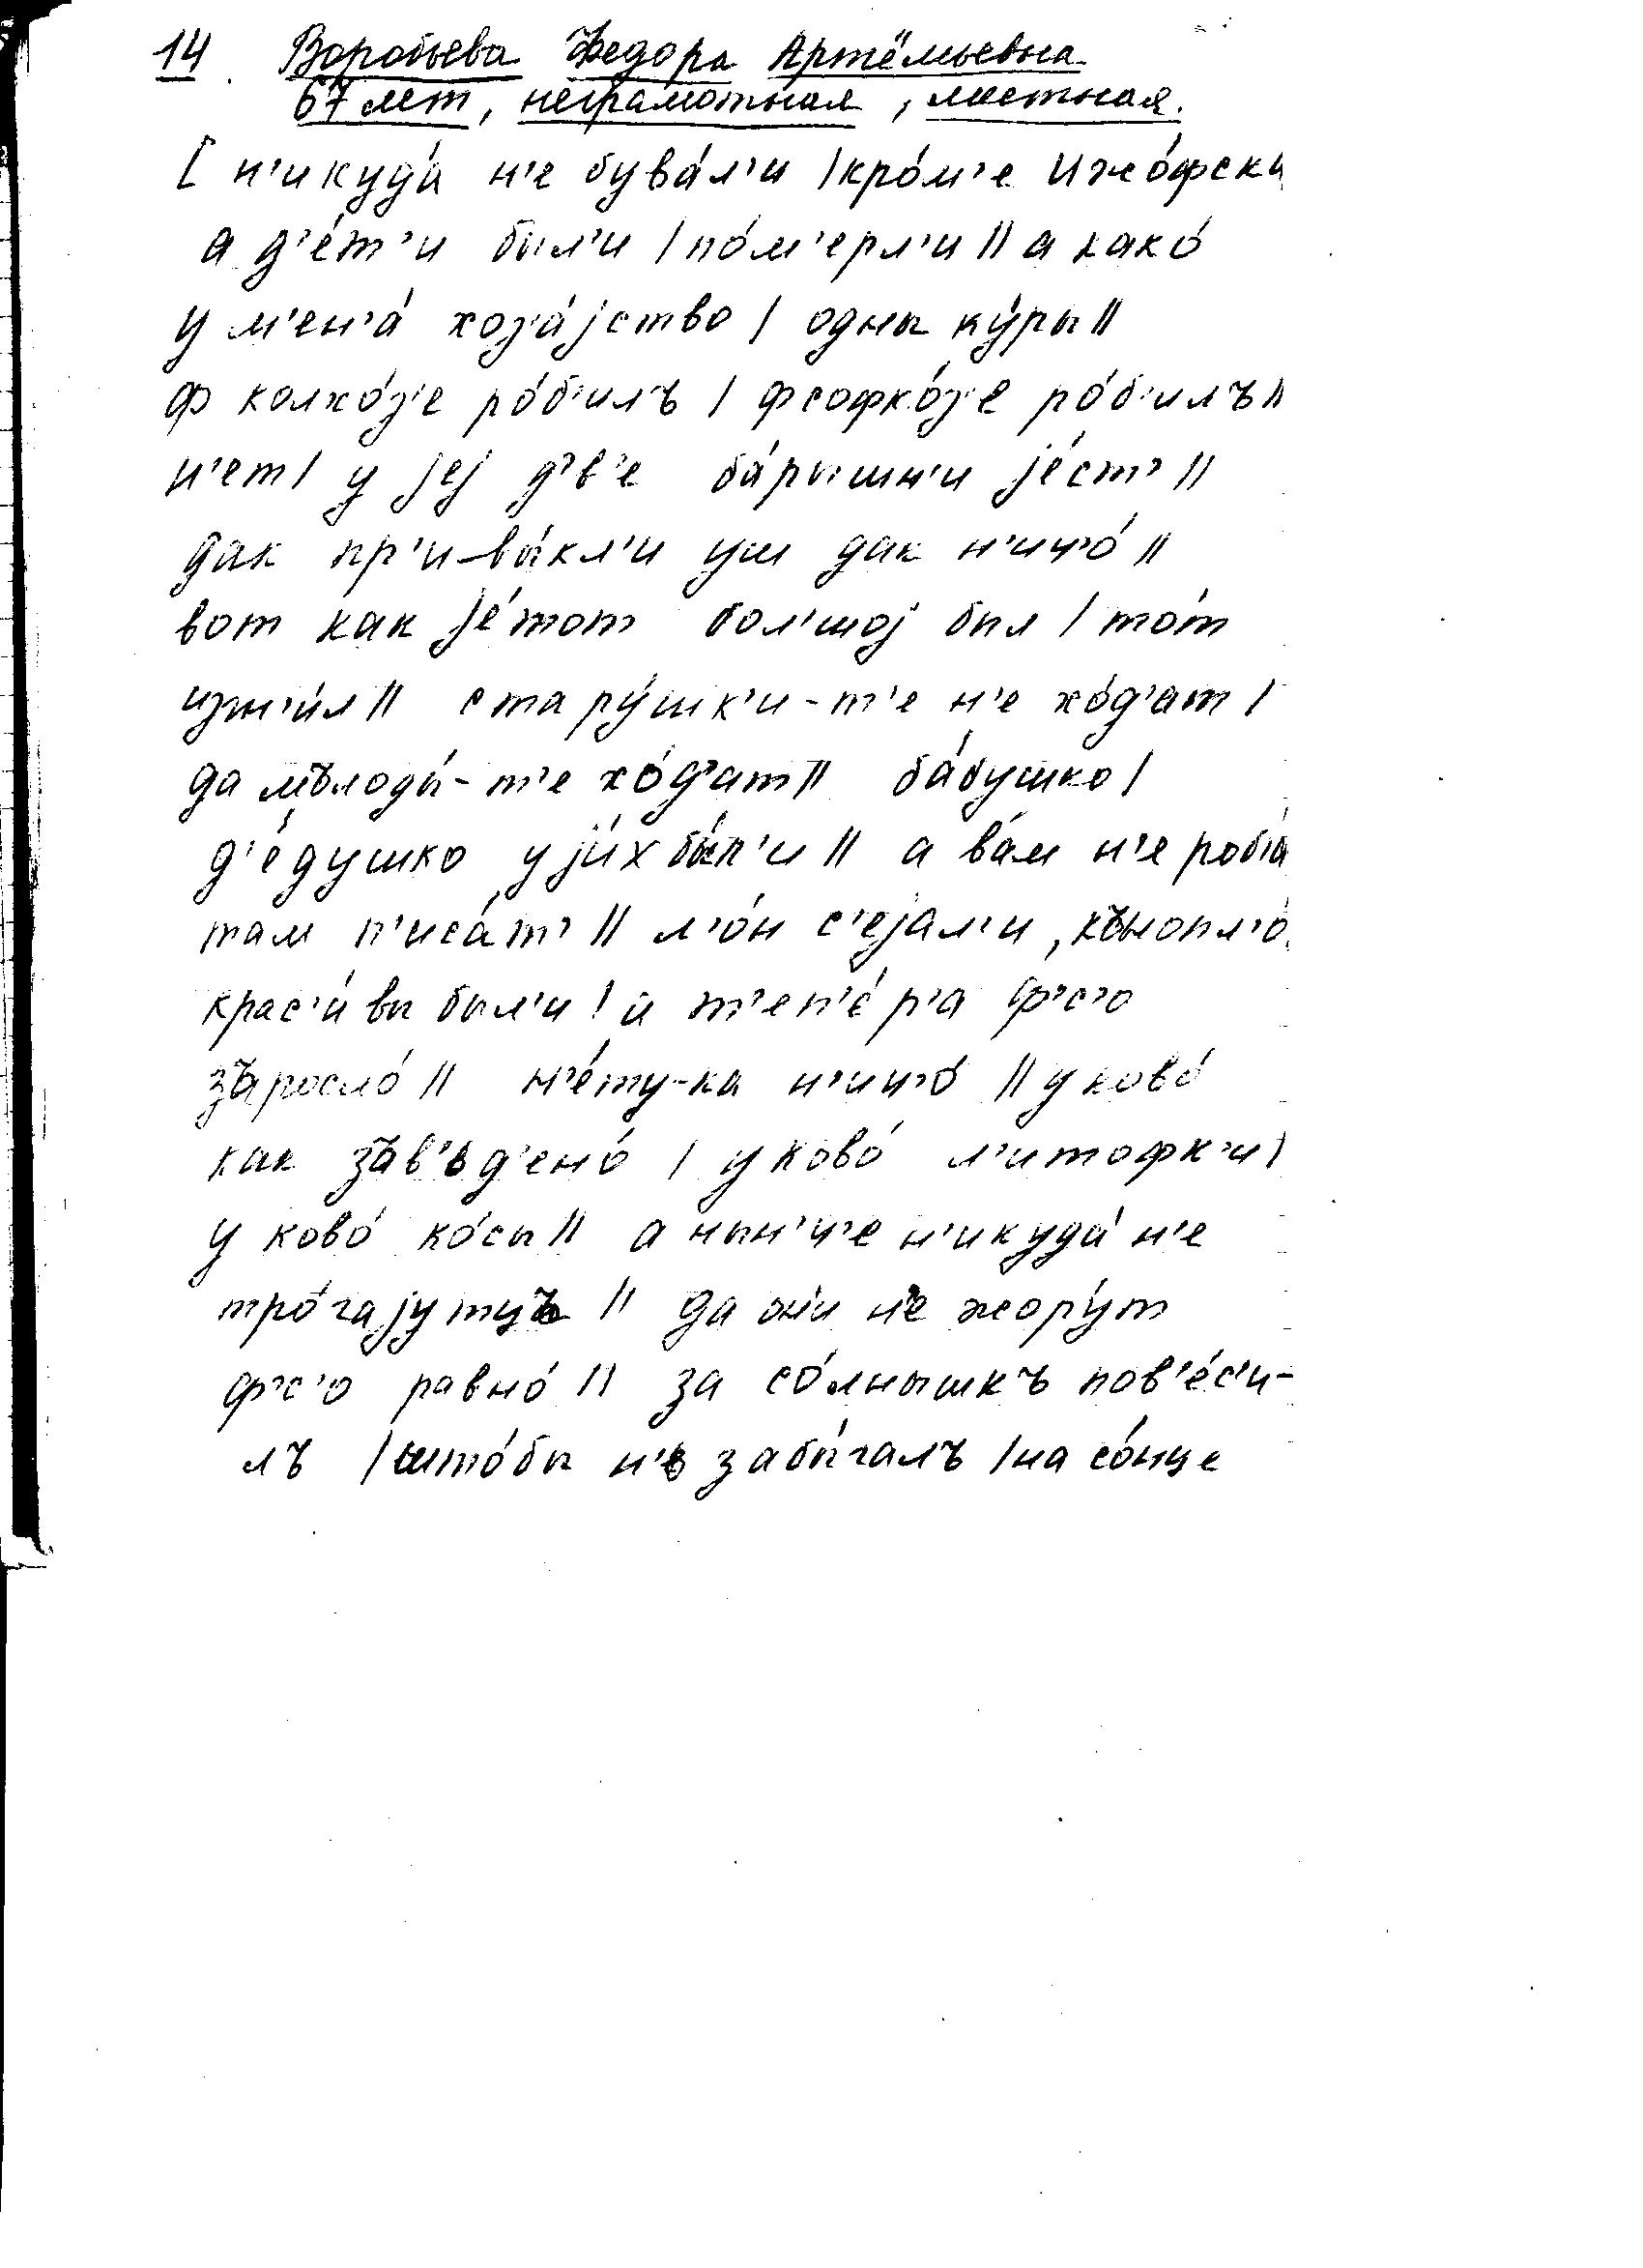 14. Воробьева Федора Артёмьевна
67 лет, неграмотная, местная.
[ н'икуда́ н'е бува́л'и | кро́м'е Ижо́фска
а д'е́т'и был'и | по́м'ерл'и || а како́
у м'ен'а́ хоз'а́jство | одны ку́ры ||
ф колхо́з'е ро́б'илъ | фсофхо́з'е ро́б'илъ ||
н'ет | у jej д'в'е ба́рышн'и jе́ст' ||
дак пр'ивы́кл'и уш дак н'ич'о́ ||
вот как jе́тот бол'шоj был | то́т
изжы́л || стару́шк'и-т'е н'е хо́д'ат |
да мълоды́-т'е хо́д'ат || ба́бушко |
д'е́душко у jи́х бы́л'и || а ва́м н'е роб'а́
там п'иса́т' || л'о́н с'еjал'и, кънопл'о́
крас'и́вы был'и | а т'еп'е́р'а ф'с'о
зъросло́ || н'е́ту-ка н'ич'о́ || у ково́
как зъв'ъд'ено́ | у ково́ л'итофк'и |
у ково́ ко́сы || а нын'ч'е н'икуда́ н'е
тро́гаjутцъ || да он'и н'е жору́т
ф'с'о равно́ || за со́лнышкъ пов'е́с'и-
лъ | што́бы н'ь забы́галъ | на со́нце